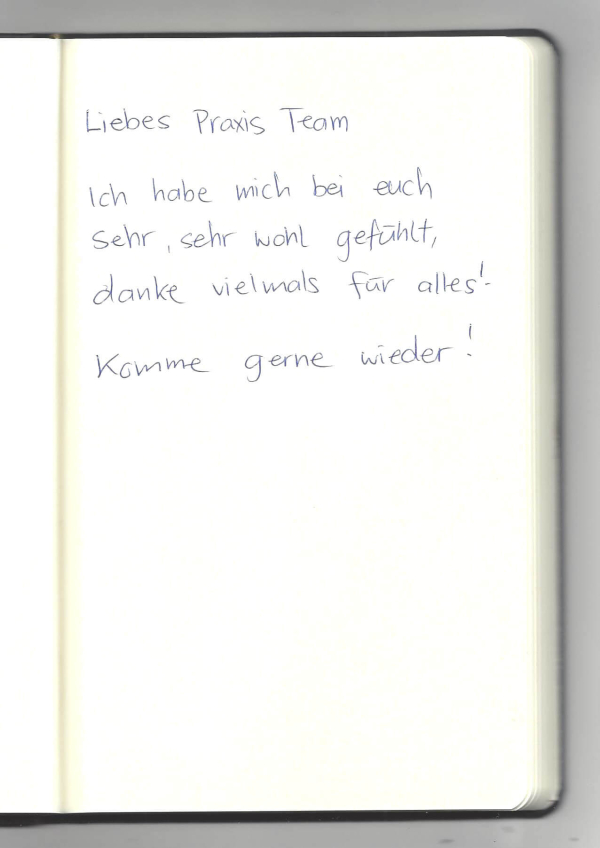 Liebes Praxis Team
Ich habe mich bei euch
sehr, sehr wohl gefühlt,
danke vielmals für alles!
Komme gerne wieder!